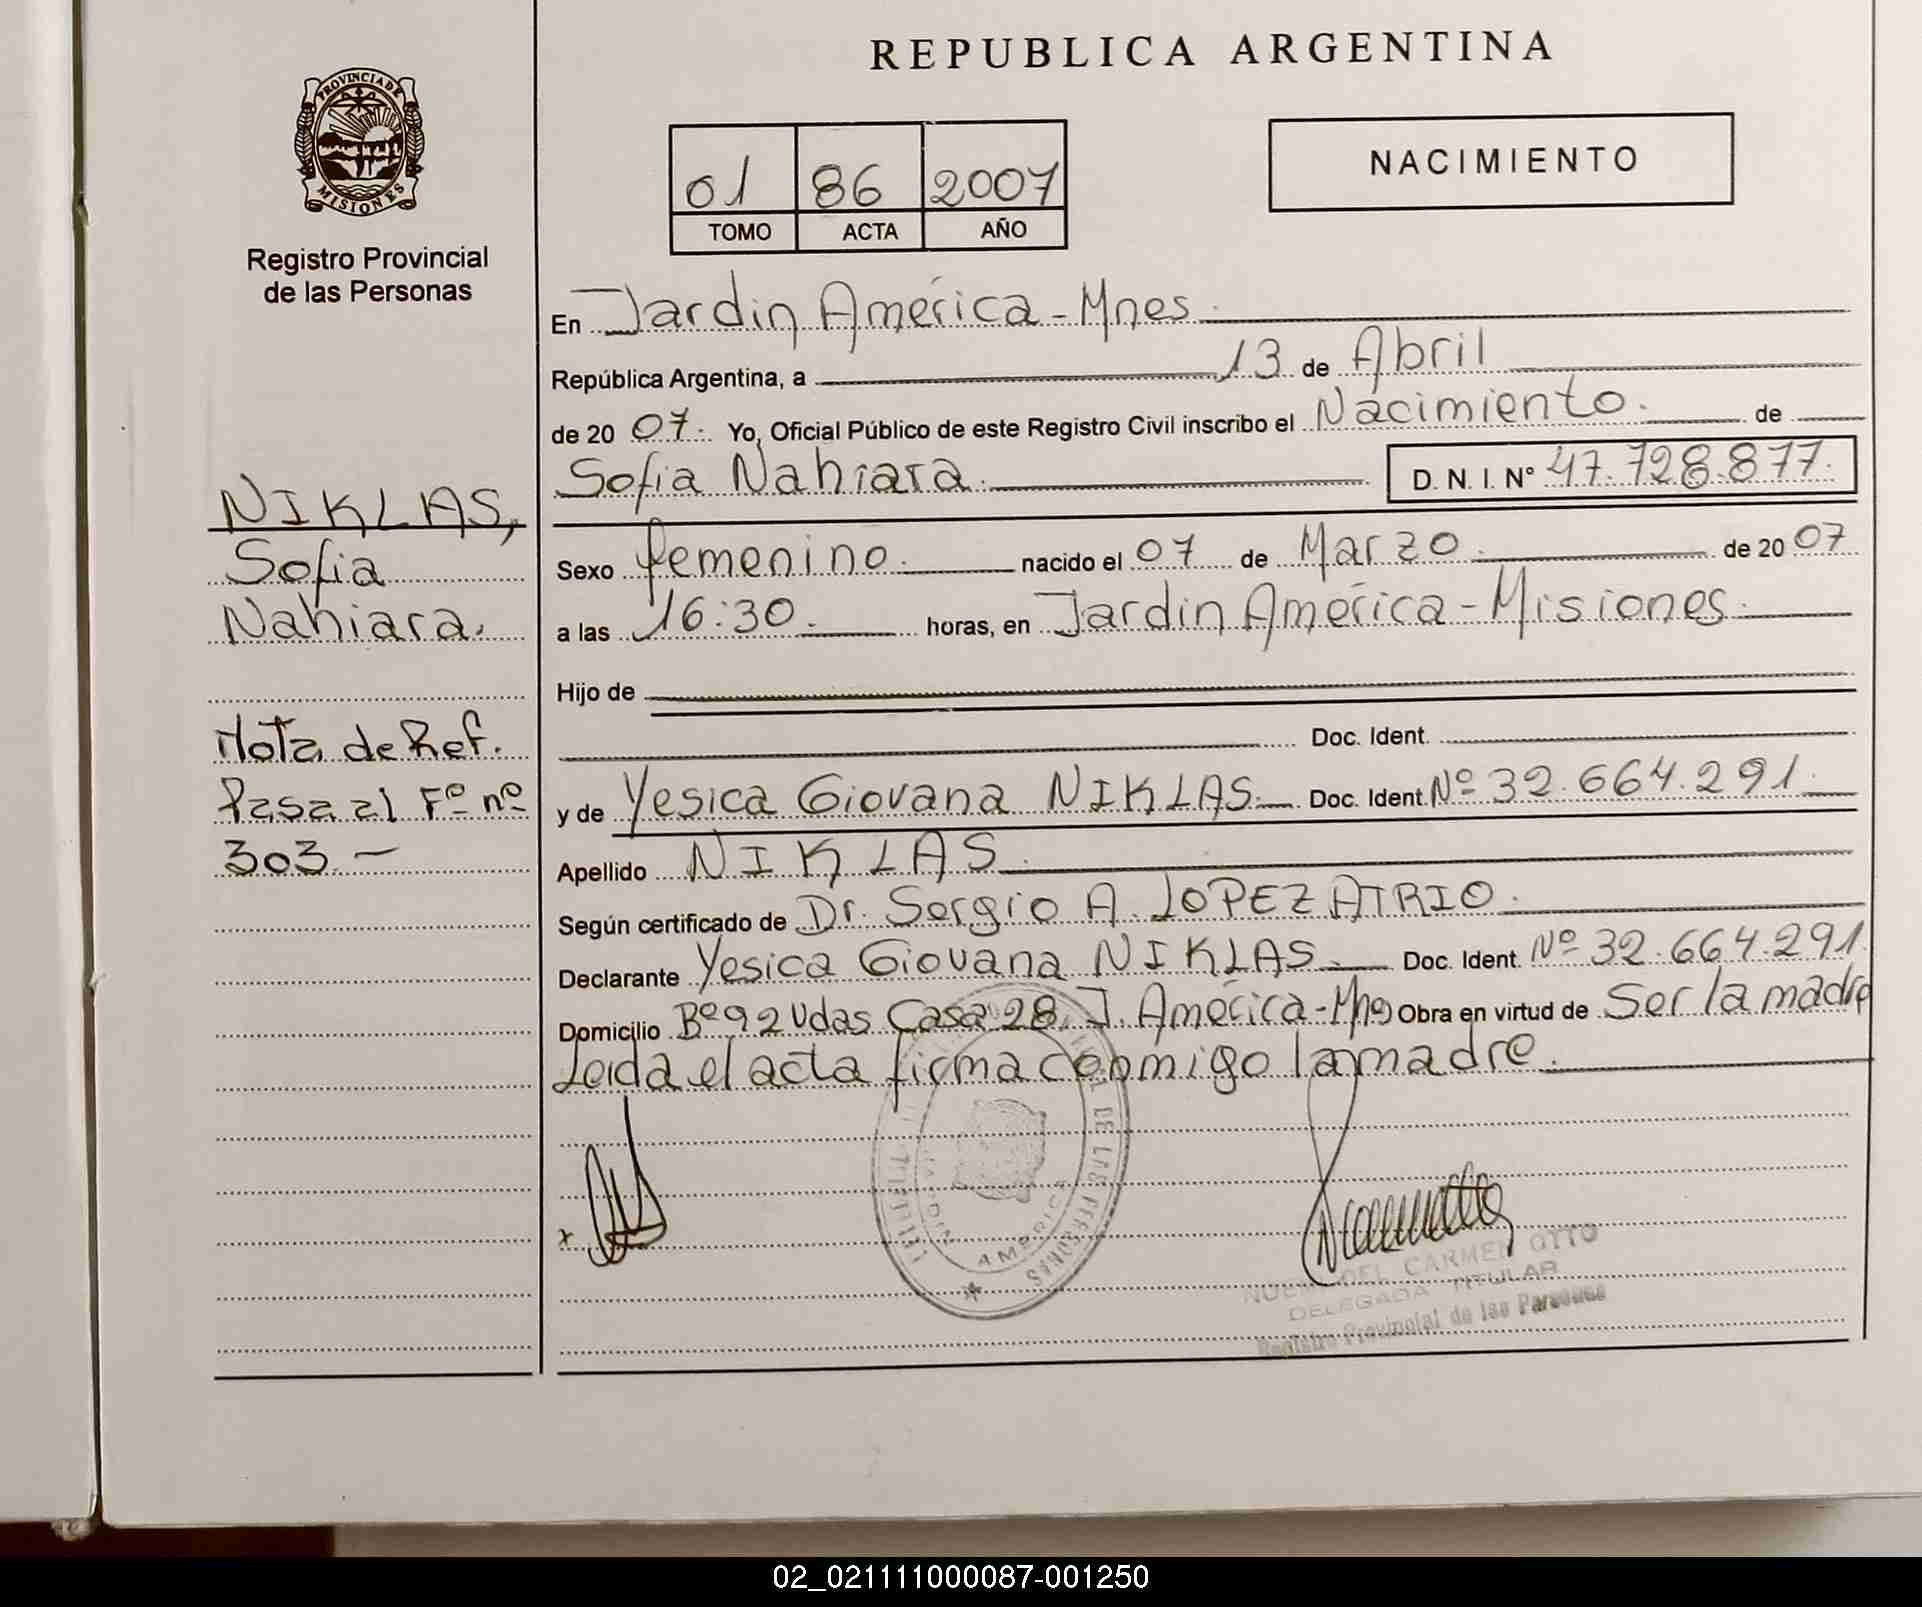 REPUBLICA ARGENTINA
PROVINCIA DE
MISIONES
Registro Provincial
de las Personas
01 86 2007
TOMO ACTA AÑO
NACIMIENTO
En Jardin América - Mnes.
República Argentina, a 13 de Abril
de 20 07. Yo, Oficial Público de este Registro Civil inscribo el Nacimiento. de
Sofia Nahiara. D. N. I. Nº 47.728.877.
Sexo femenino. nacido el 07 de Marzo. de 20 07
a las 16:30. horas, en Jardin América - Misiones.
Hijo de
Doc. Ident.
y de Yesica Giovana NIKLAS. Doc. Ident. Nº 32.664.291.
Apellido NIKLAS.
Según certificado de Dr. Sergio A. LOPEZ ATRIO.
Declarante Yesica Giovana NIKLAS. Doc. Ident. Nº 32.664.291.
Domicilio Bº 92 Vdas Casa 28. J. América - Mnes Obra en virtud de Ser la madre
Leida el acta firma conmigo la madre.
NIKLAS,
Sofia
Nahiara.
Nota de Ref.
Pasa al Fº nº
303. -
DE LAS PERSONAS
JARDIN AMERICA
DEL CARMEN OTTO
DELEGADA TITULAR
Registro Provincial de las Personas
02_021111000087-001250